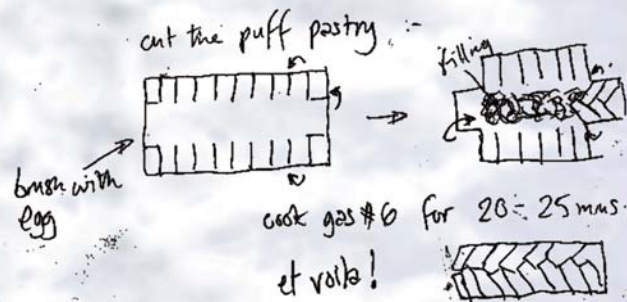 cut the puff pastry :-
filling
brush with
egg
cook gas #6 for 20-25 mns.
et voila!